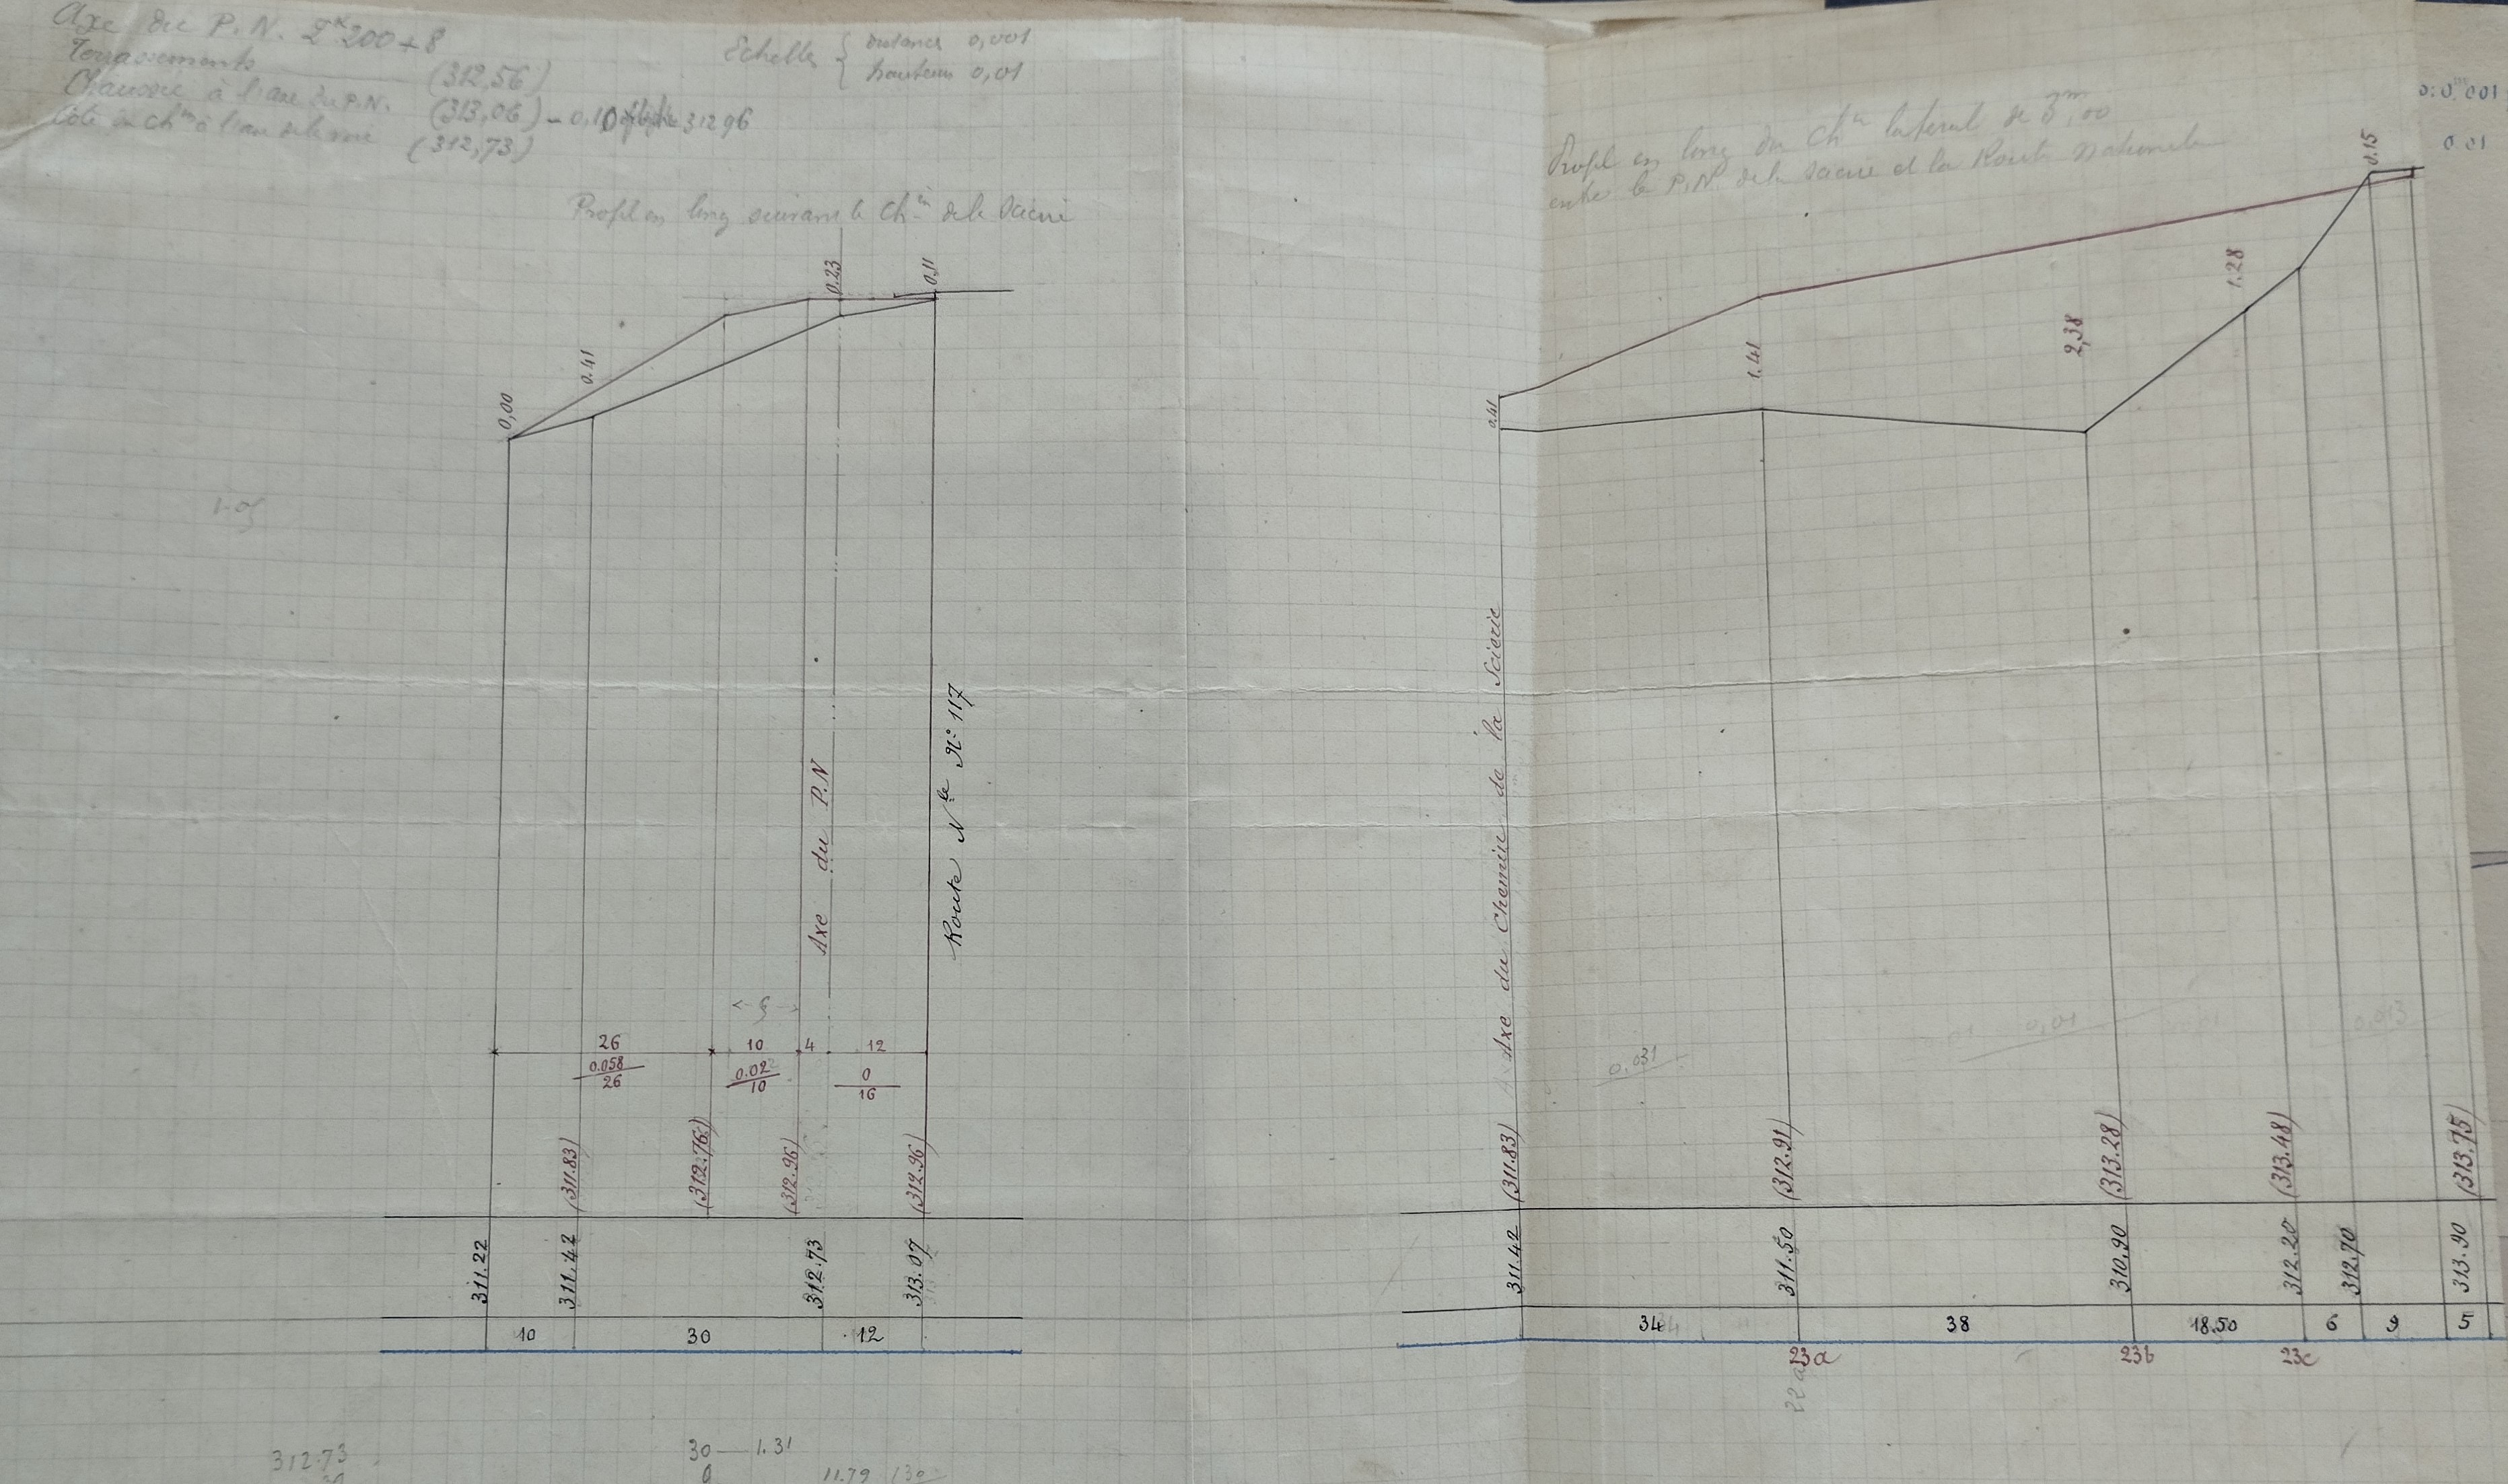 Axe du P.N. 200+8
Terrassements (312,56)
Chaussée à l'axe du P.N. (313,06) - 0,10 312 96
Côté du Ch^in à l'axe de la voie (312,73)
Echelles { distances 0,001
hauteurs 0,01
Profil en long suivant le Ch^in de la Scierie
0,00
0.41
0.23
0.11
Axe du P.N
Route N^le N° 117
6
26 10 4 12
0.058
26
0.02
10
0
16
(311.83) (312.76) (312.96) (312.96)
311.22 311.42 312.73 313.07
10 30 12
312.73
30 — 1.31
0
11.79 130
Profil en long du Ch^in latéral de 3^m,00
entre le P.N. de la Scierie et la Route Nationale
0.001
0 01
0.41
1.41
2,38
1.28
0.15
Axe du Chemin de la Scierie
0.031
0,01
0.013
(311.83) (312.91) (313.28) (313.48) (313.75)
311.42 311.50 310.90 312.20 312.70 313.90
34 38 18.50 6 9 5
23a 23b 23c
22 a